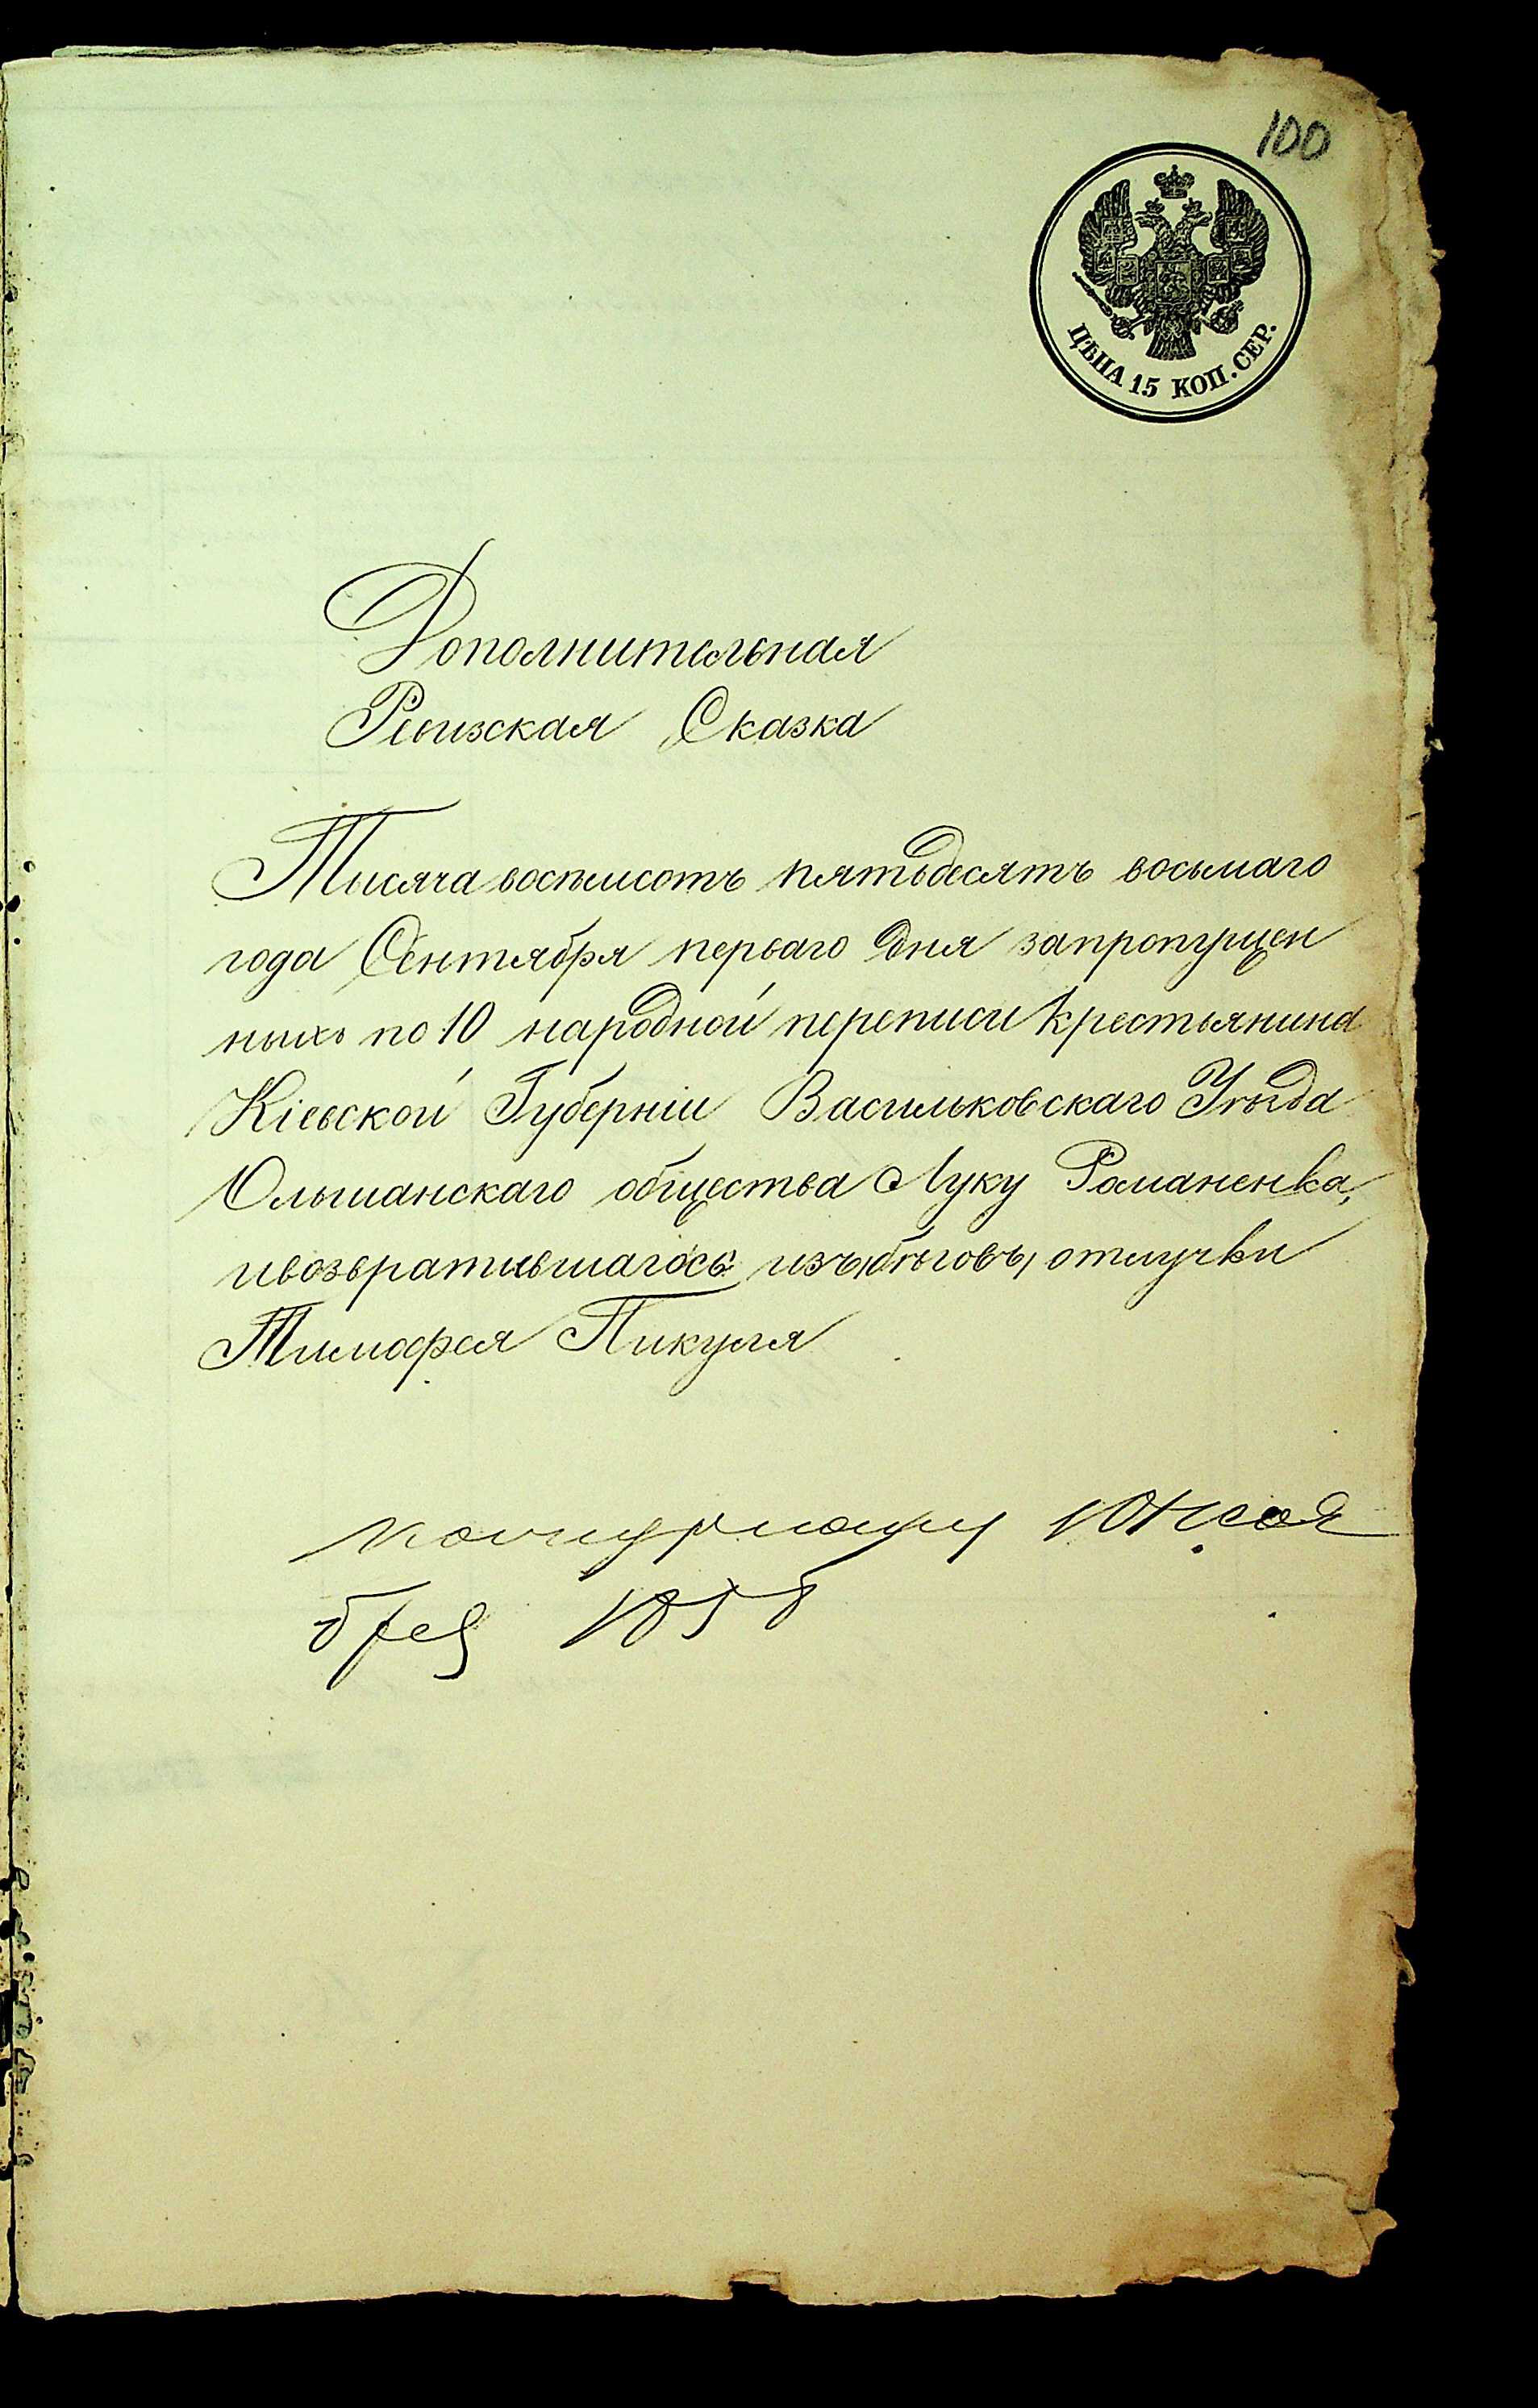 100
ЦѢНА 15 КОП. СЕР.
Дополнительная
Ревизская Сказка
Тысяча восемсотъ пятьдесятъ восьмаго
года Сентября перваго дня запропущен
ныхъ по 10 народной переписи крестьянина
Кіевской Губерніи Васильковскаго Уѣзда
Ольшанскаго общества Луку Романенка,
ивозвратившагось изъ бѣговъ, отлучки
Тимофея Пикуля